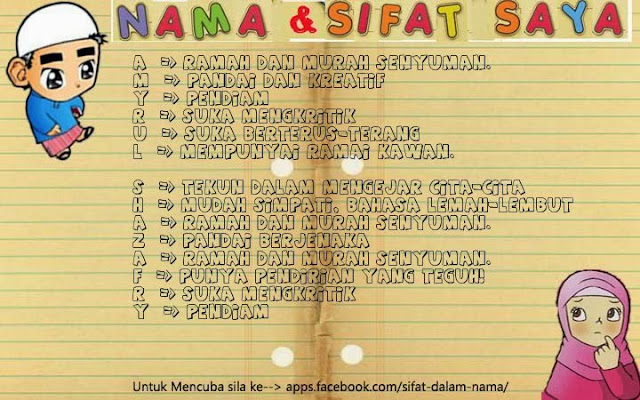 NAMA & SIFAT SAYA
A => RAMAH DAN MURAH SENYUMAN.
M => PANDAI DAN KREATIF
Y => PENDIAM
R => SUKA MENGKRITIK
U => SUKA BERTERUS-TERANG
L => MEMPUNYAI RAMAI KAWAN.
S => TEKUN DALAM MENGEJAR CITA-CITA
H => MUDAH SIMPATI, BAHASA LEMAH-LEMBUT
A => RAMAH DAN MURAH SENYUMAN.
Z => PANDAI BERJENAKA
A => RAMAH DAN MURAH SENYUMAN.
F => PUNYA PENDIRIAN YANG TEGUH!
R => SUKA MENGKRITIK
Y => PENDIAM
Untuk Mencuba sila ke--> apps.facebook.com/sifat-dalam-nama/